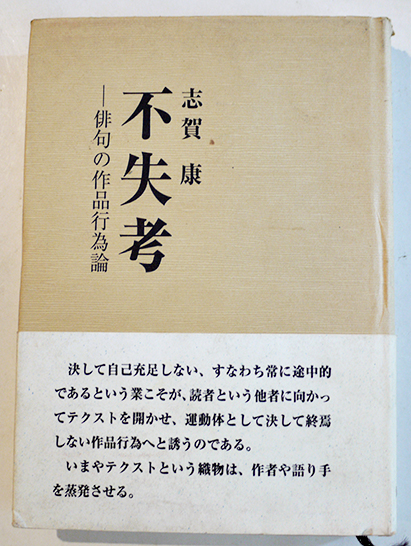 志賀 康
不失考
―俳句の作品行為論
決して自己充足しない、すなわち常に途中的
であるという業こそが、読者という他者に向かっ
てテクストを開かせ、運動体として決して終焉
しない作品行為へと誘うのである。
いまやテクストという織物は、作者や語り手
を蒸発させる。